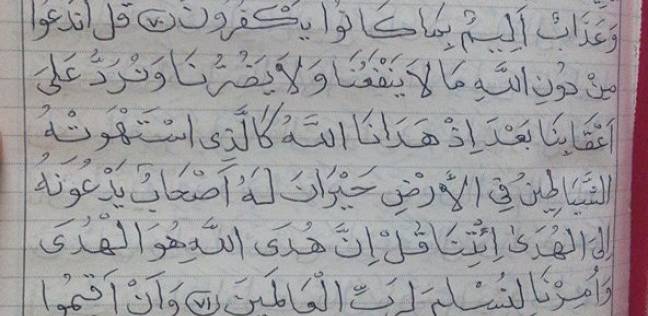 وَعَذَابٌ أَلِيمٌ بِمَا كَانُوا يَكْفُرُونَ ﴿٧٠﴾ قُلْ أَنَدْعُوا
مِنْ دُونِ اللَّهِ مَا لَا يَنْفَعُنَا وَلَا يَضُرُّنَا وَنُرَدُّ عَلَى
أَعْقَابِنَا بَعْدَ إِذْ هَدَانَا اللَّهُ كَالَّذِي اسْتَهْوَتْهُ
الشَّيَاطِينُ فِي الْأَرْضِ حَيْرَانَ لَهُ أَصْحَابٌ يَدْعُونَهُ
إِلَى الْهُدَى ائْتِنَا قُلْ إِنَّ هُدَى اللَّهِ هُوَ الْهُدَى
وَأُمِرْنَا لِنُسْلِمَ لِرَبِّ الْعَالَمِينَ ﴿٧١﴾ وَأَنْ أَقِيمُوا